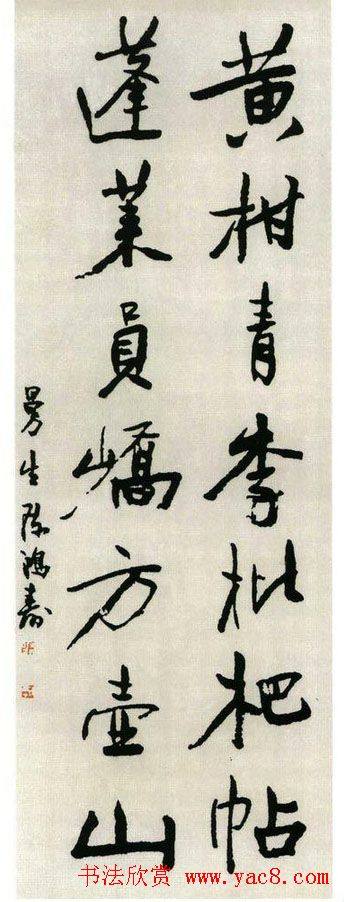 黄柑青李枇杷帖
蓬莱員嶠方壺山
曼生陈鸿寿
书法欣赏 www.yac8.com